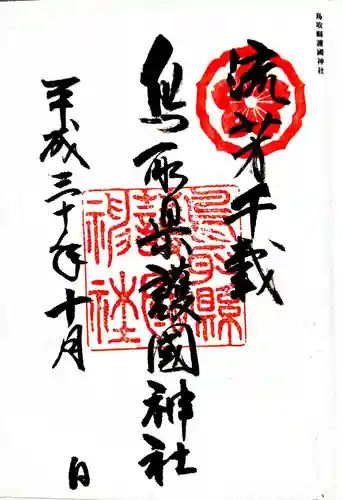 鳥取縣護國神社
流芳千載
鳥取県護國神社
鳥取縣
護國
神社
平成三十年十月
日